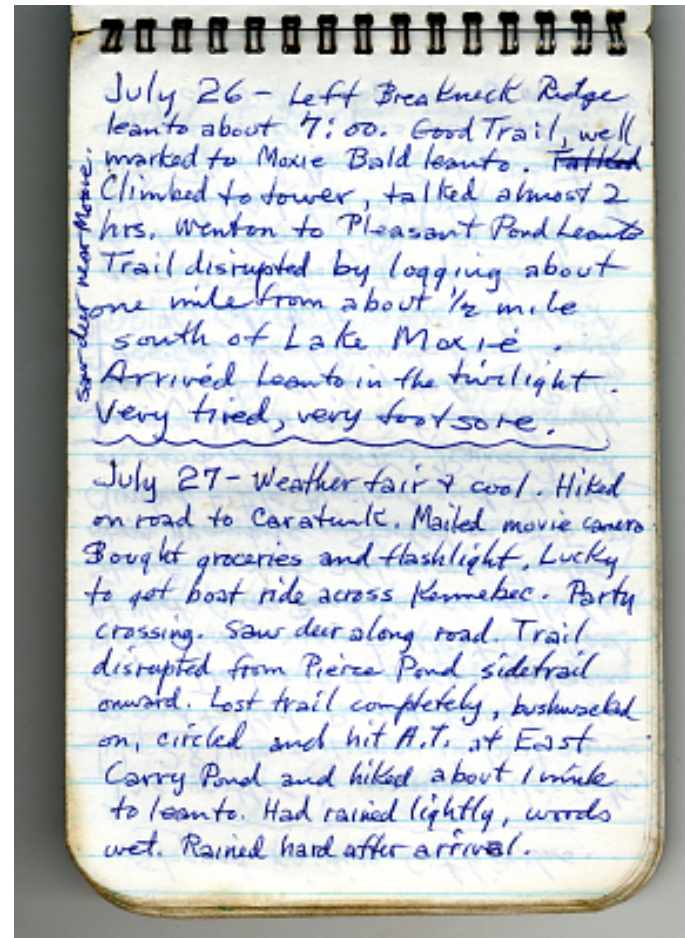 July 26 - Left Breakneck Ridge
leanto about 7:00. Good Trail, well
marked to Moxie Bald leanto. Talked
Climbed to tower, talked almost 2
hrs. Wenton to Pleasant Pond Leanto
Trail disrupted by logging about
one mile from about 1/2 mile
south of Lake Moxie.
Arrived Leanto in the twilight.
Very tired, very footsore.
Saw deer near Moxie.
July 27 - Weather fair & cool. Hiked
on road to Caratunk. Mailed movie camera
Bought groceries and flashlight. Lucky
to get boat ride across Kennebec. Party
crossing. Saw deer along road. Trail
disrupted from Pierce Pond sidetrail
onward. Lost trail completely, bushwacked
on, circled and hit A.T. at East
Carry Pond and hiked about 1 mile
to leanto. Had rained lightly, woods
wet. Rained hard after arrival.